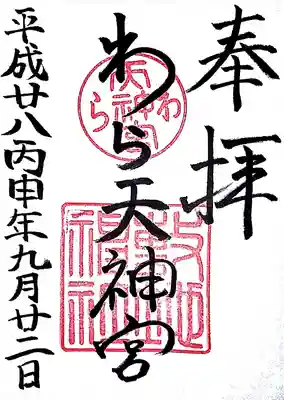 奉拝
わら天神宮
平成廿八丙申年九月廿二日